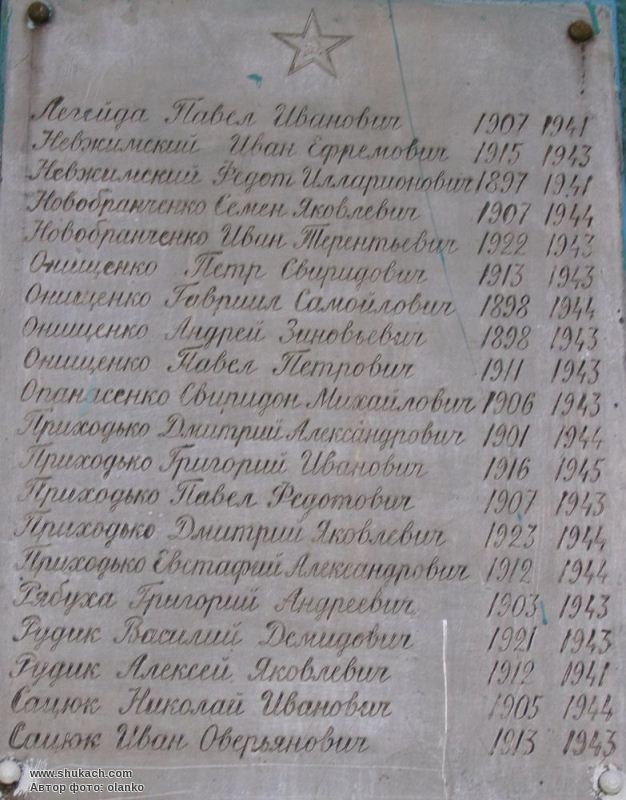 Легейда Павел Иванович 1907 1941
Невжимский Иван Ефремович 1915 1943
Невжимский Федот Илларионович 1897 1941
Новобранченко Семен Яковлевич 1907 1944
Новобранченко Иван Терентьевич 1922 1943
Онищенко Петр Свиридович 1913 1943
Онищенко Гавриил Самойлович 1898 1944
Онищенко Андрей Зиновьевич 1898 1943
Онищенко Павел Петрович 1911 1943
Опанасенко Свиридон Михайлович 1906 1943
Приходько Дмитрий Александрович 1901 1944
Приходько Григорий Иванович 1916 1945
Приходько Павел Федотович 1907 1943
Приходько Дмитрий Яковлевич 1923 1944
Приходько Евстафий Александрович 1912 1944
Рябуха Григорий Андреевич 1903 1943
Рудик Василий Демидович 1921 1943
Рудик Алексей Яковлевич 1912 1941
Сацюк Николай Иванович 1905 1944
Сацюк Иван Оверьянович 1913 1943
www.shukach.com
Автор фото: olanko